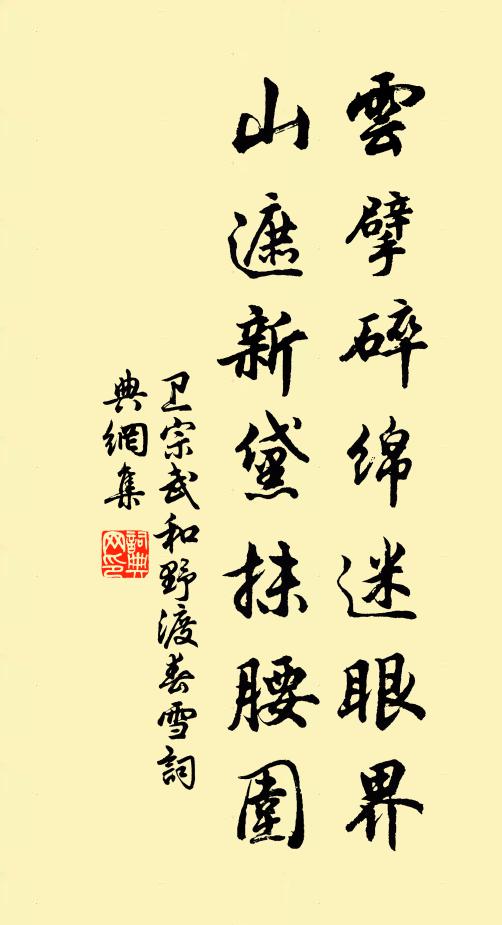 雲擘碎綿迷眼界
山遮新黛抹腰圍
卫宗武和野渡春雪詞
典網集
詞典网印